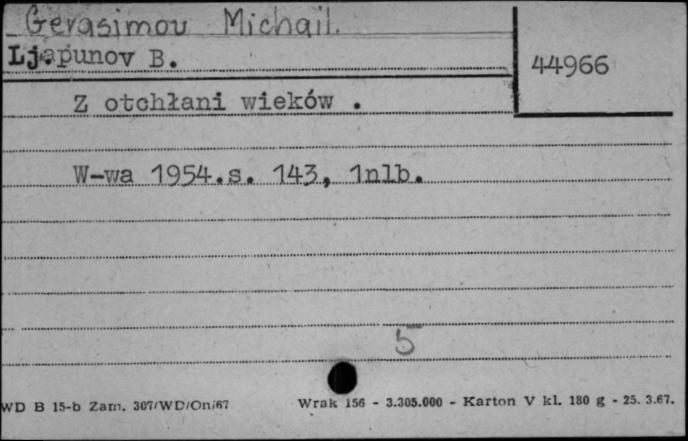 Gerasimov Michail.
Ljapunov B.
44966
Z otchłani wieków .
W-wa 1954.s. 143, 1nlb.
5
WD B 15-b Zam. 307/WD/Oni/67
Wrak 156 - 3.305.000 - Karton V kl. 180 g - 25. 3.67.